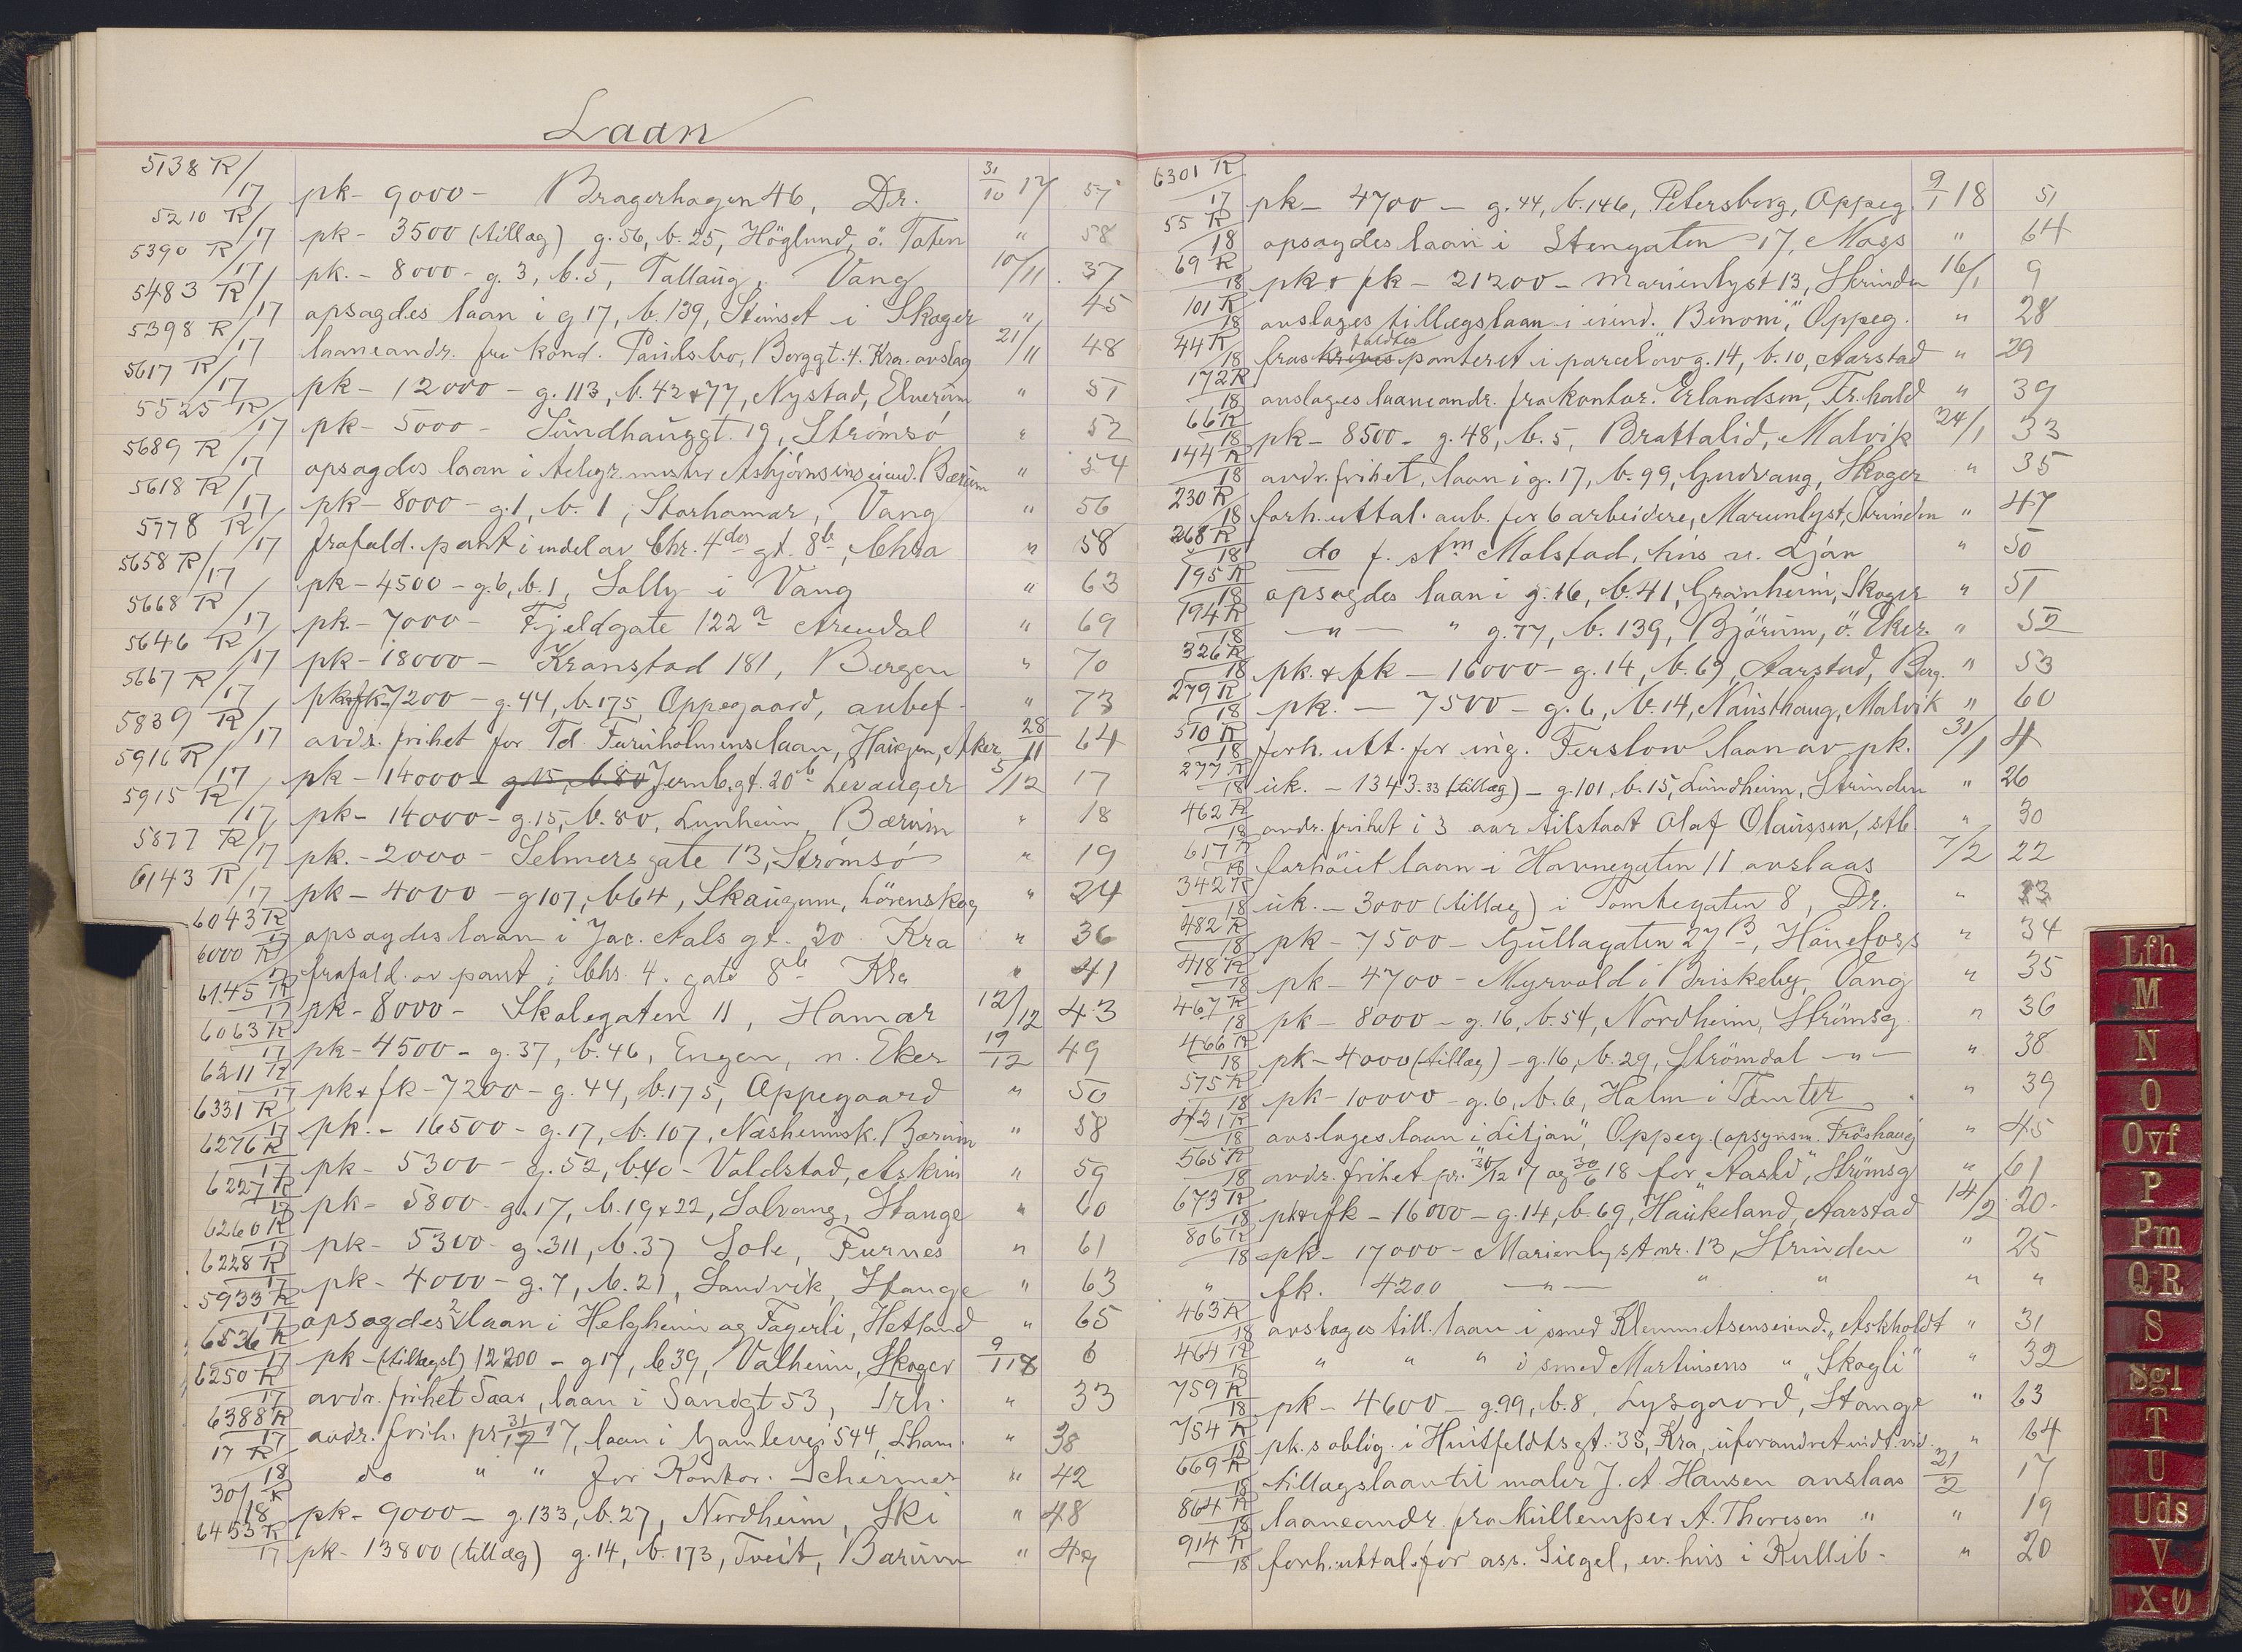 Laan
5138 R/17 pk - 9000 - Bragerhagen 46, Dr. 31/10 17 57
5210 R/17 pk - 3500 (tillæg) g. 56, b. 25, Höglund, ö. Toten " 58
5390 R/17 pk. - 8000 - g. 3, b. 5, Tallaug, Vang 10/11 37
5483 R/17 opsagdes laan i g 17, b. 139, Steinset i Skoger " 45
5398 R/17 laaneandr. fra kond. Paulsbo, Borggt. 4. Kra. avslag 21/11 48
5617 R/17 pk - 12000 - g. 113, b. 42 & 77, Nystad, Elverum " 51
5525 R/17 pk - 5000 - Sundhauggt. 19, Strömsö " 52
5689 R/17 opsagdes laan i telegr. mester Asbjörnsens eiend. Bærum " 54
5618 R/17 pk - 8000 - g. 1, b. 1, Storhamar, Vang " 56
5778 R/17 frafald. pant i endel av Chr. 4des gt. 8b, Chra " 58
5658 R/17 pk - 4500 - g. 6, b. 1, Solly i Vang " 63
5668 R/17 pk - 7000 - Fjeldgate 122a Arendal " 69
5646 R/17 pk - 18000 - Kranstad 181, Bergen " 70
5667 R/17 pk & fk - 7200 - g. 44, b. 175, Oppegaard, anbef. " 73
5839 R/17 avdr. frihet for Td. Furuholmens laan, Haugen, Aker 28/11 64
5916 R/17 pk - 14000 - g 15, b. 80 Jernb.gt. 20b Levanger 5/12 17
5915 R/17 pk - 14000 - g. 15, b. 80, Lunheim Bærum " 18
5877 R/17 pk. - 2000 - Selmers gate 13, Strömsö " 19
6143 R/17 pk - 4000 - g 107, b 64, Skaugum, Lörenskog " 24
6043 R/17 opsagdes laan i Jac. Aals gt. 20 Kra " 36
6000 R/17 frafald. av pant i Chr. 4. gate 8b Kra " 41
6145 R/17 pk - 8000 - Skolegaten 11, Hamar 12/12 43
6063 R/17 pk - 4500 - g. 37, b. 46, Engen, n. Eker 19/12 49
6211 R/17 pk & fk - 7200 - g. 44, b. 175, Oppegaard " 50
6331 R/17 pk. - 16500 - g. 17, b. 107, Næsheimsk. Bærum " 58
6276 R/17 pk - 5300 - g. 52, b. 40 - Voldstad, Askim " 59
6227 R/17 pk - 5800 - g. 17, b. 19 & 22, Solvang, Stange " 60
6260 R/17 pk - 5300 - g. 311, b. 37 Sole, Furnes " 61
6228 R/17 pk - 4000 - g. 7, b. 21, Sandvik, Stange " 63
5933 R/17 opsagdes 2 laan i Helgheim og Fagerli, Hetland " 65
6536 R/17 pk - (tillægsl) 12200 - g 17, b 39, Valheim, Skoger 9/1 18 6
6250 R/17 avdr. frihet 5 aar, laan i Sandgt 53, Trh. " 33
6388 R/17 avdr. frih. pr 31/12 17, laan i Gamlevei 544, Lham. " 38
17 R/18 do " " for Kontor. Schirmer " 42
301 R/18 pk - 9000 - g. 133, b. 27, Nordheim, Ski " 48
6453 R/17 pk - 13800 (tillæg) g. 14, b. 173, Tveit, Bærum " 49
6301 R/17 pk - 4700 - g. 44, b. 146, Petersborg, Oppeg. 9/1 18 51
55 R/18 opsagdes laan i Stengaten 17, Moss " 64
69 R/18 pk & fk - 21200 - Marienlyst 13, Strinden 16/1 9
101 R/18 avslages tillægslaan i eiend. "Benoni", Oppeg. " 28
44 R/18 fraskrives faldtes panteret i parcel av g. 14, b. 10, Aarstad " 29
172 R/18 avslages laaneandr. fra kontor. Erlandsen, Fr.hald " 39
66 R/18 pk - 8500 - g. 48, b. 5, Brattalid, Malvik 24/1 33
144 R/18 avdr. frihet, laan i g. 17, b. 99, Gudvang, Skoger " 35
230 R/18 forh. uttal. anb. for 6 arbeidere, Marienlyst, Strinden " 47
268 R/18 do f. stm Molstad, hus v. Ljan " 50
195 R/18 opsagdes laan i g. 16, b. 41, Granheim, Skoger " 51
194 R/18 -"- " g. 77, b. 139, Björum, ö. Eker " 52
326 R/18 pk. & fk - 16000 - g. 14, b. 69, Aarstad, Berg. " 53
279 R/18 pk. - 7500 - g. 6, b. 14, Nausthaug, Malvik " 60
510 R/18 forh. utt. for ing. Ferslow laan av pk. 31/1 4
277 R/18 uk. - 1343.33 (tillæg) - g. 101, b. 15, Lundheim, Strinden " 26
462 R/18 avdr. frihet i 3 aar tilstaat Olaf Olaussen, stb. " 30
617 R/18 forhöiet laan i Havnegaten 11 avslaas 7/2 22
342 R/18 uk. - 3000 (tillæg) i Tomtegaten 8, Dr. " 23
482 R/18 pk - 7500 - Gullagaten 27B, Hönefoss " 34
418 R/18 pk - 4700 - Myrvold i Briskeby, Vang " 35
467 R/18 pk - 8000 - g. 16, b. 54, Nordheim, Strömsg. " 36
466 R/18 pk - 4000 (tillæg) - g. 16, b. 29, Strömdal -"- " 38
575 R/18 pk - 10000 - g. 6, b. 6, Holm i Tomter " 39
421 R/18 avslages laan i "Litjan", Oppeg. (opsynsm. Fröshaug) " 45
565 R/18 avdr. frihet pr. 30/12 17 og 30/6 18 for "Aasli", Strömsg " 61
673 R/18 pk & fk - 16000 - g. 14, b. 69, Haukeland, Aarstad 14/2 20.
806 R/18 pk - 17000 - Marienlyst nr. 13, Strinden " 25
" fk. 4200 -"- " " " "
463 R/18 avslages till. laan i smed Klemmetsens eiend. "Askholdt " 31
464 R/18 " " " i smed Martinsens " "Skogli" " 32
759 R/18 pk - 4600 - g. 99, b. 8, Lysgaard, Stange " 63
754 R/18 pk. s oblig. i Huitfeldtsgt. 35, Kra, uforandret indt. vid. " 64
669 R/18 tillægslaan til maler J. A. Hansen avslaas 21/2 17
864 R/18 laaneandr. fra kullemper A. Thoresen " " 19
914 R/18 forh. uttal. for ass. Siegel, ev. hus i Kullib. " 20
Lfh
M
N
O
Ovf
P
Pm
QR
S
Sgl
T
U
Uds
V
X-Ø